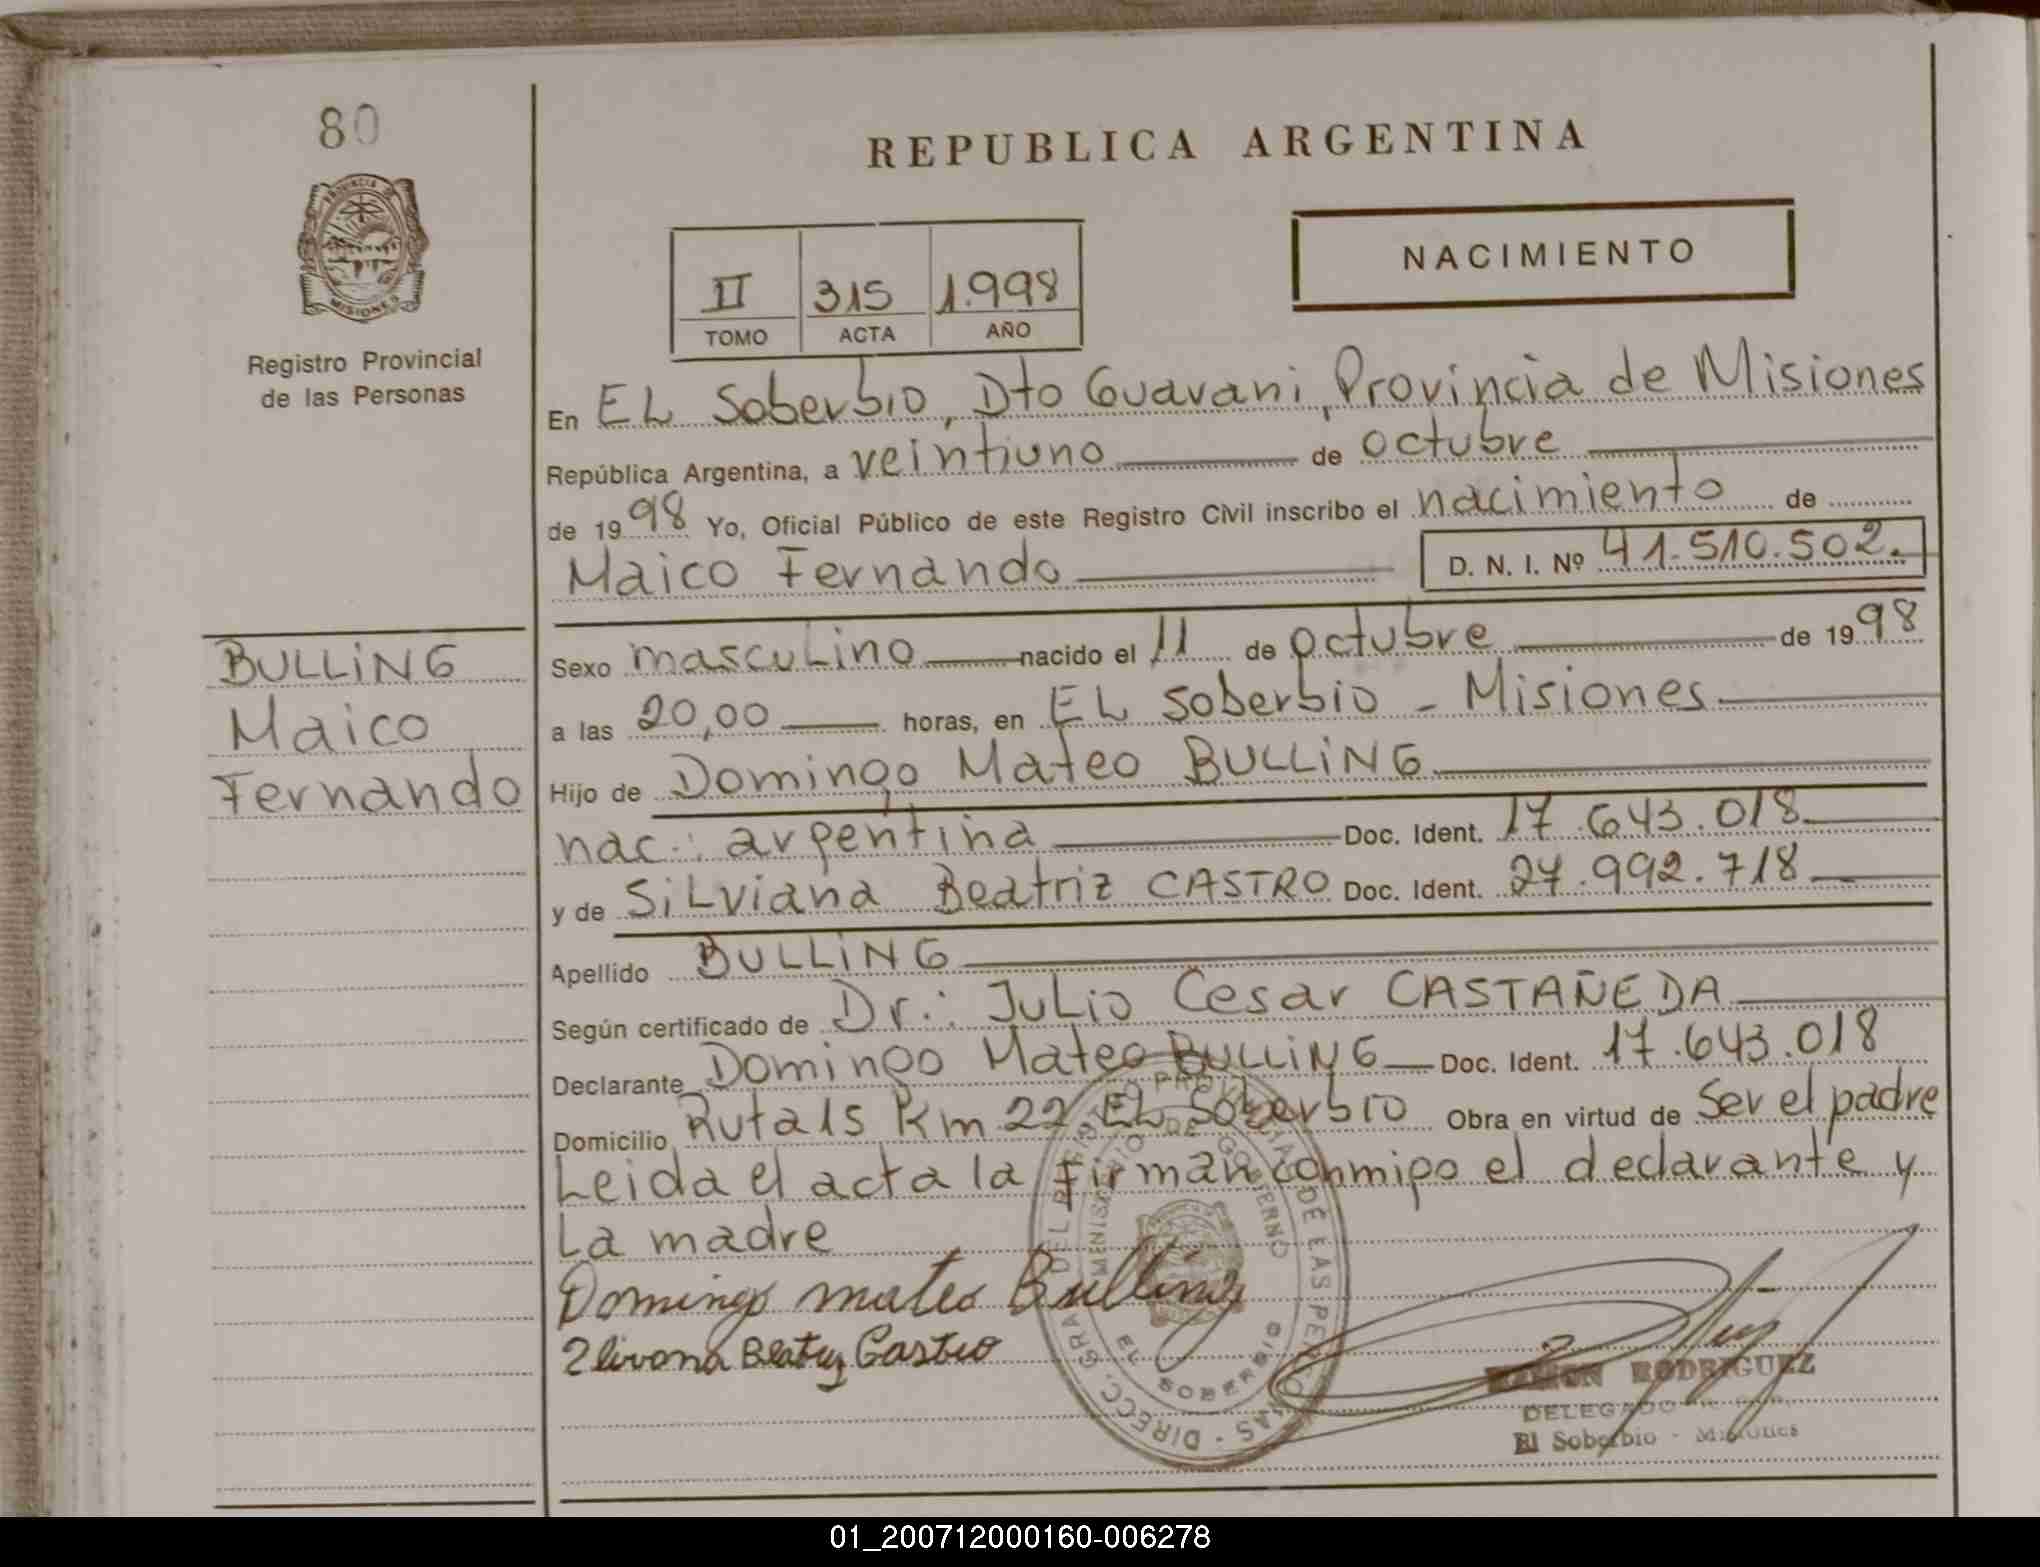 80
PROVINCIA DE
MISIONES
Registro Provincial
de las Personas
BULLING
Maico
Fernando
REPUBLICA ARGENTINA
II 315 1.998
TOMO ACTA AÑO
NACIMIENTO
En EL Soberbio, Dto Guarani, Provincia de Misiones
República Argentina, a veintiuno de octubre
de 1998 Yo, Oficial Público de este Registro Civil inscribo el nacimiento de
Maico Fernando D. N. I. Nº 41.510.502.
Sexo masculino nacido el 11 de octubre de 1998
a las 20,00 horas, en EL Soberbio - Misiones
Hijo de Domingo Mateo BULLING
nac.: argentina Doc. Ident. 17.643.018
y de Silviana Beatriz CASTRO Doc. Ident. 27.992.718
Apellido BULLING
Según certificado de Dr.: Julio Cesar CASTAÑEDA
Declarante Domingo Mateo BULLING Doc. Ident. 17.643.018
Domicilio Ruta 15 Km 22 EL Soberbio Obra en virtud de Ser el padre
Leida el acta la firman conmigo el declarante y
La madre
Domingo mateo Bulling
Beatriz Castro
EL SOBERBIO
RAMON RODRIGUEZ
DELEGADO
El Soberbio - Misiones
01_200712000160-006278